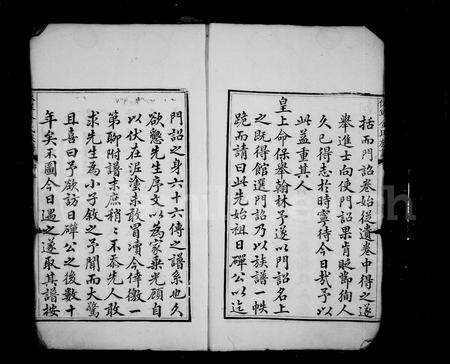 括而門詔卷始從遺卷中得之遂
舉進士向使門詔果肯貶節徇人
久已得志於時寧待今日哉予以
此益重其人
皇上命保舉翰林予遂以門詔名上
之既得館選門詔乃以族譜一帙
跪而請曰此先始祖日磾公以迄
門詔之身六十六傳之譜系也久
欲懇先生序文以為家乘光顧自
以伏在泥塗未敢冒瀆今倖徼一
第聊附譜末庶稍不忝先人敢
求先生為小子敘之予聞而大驚
且喜曰予欲訪日磾公之後數十
年矣不圖今日遇之遂取其譜按